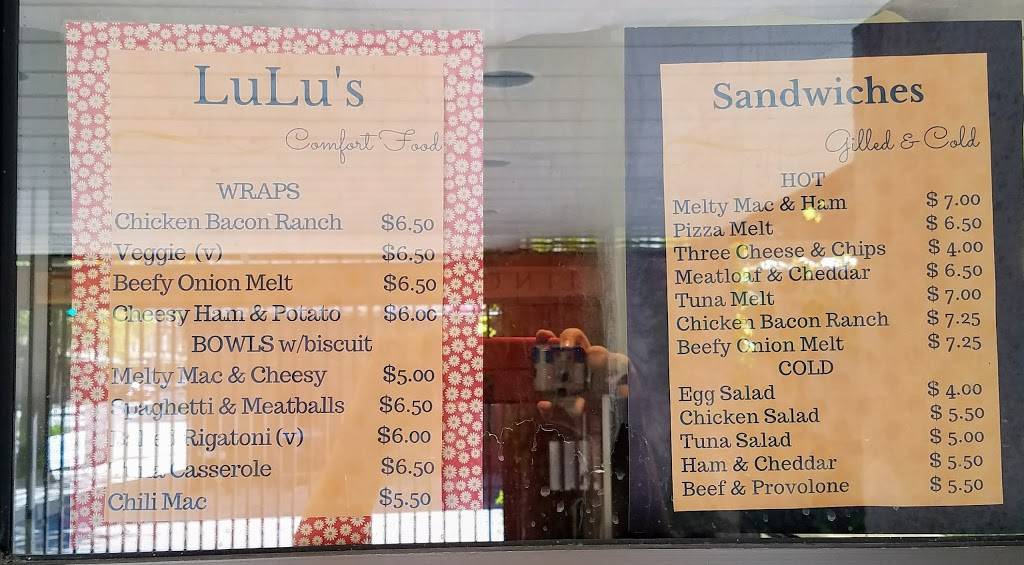 LuLu's
Comfort Food
WRAPS
Chicken Bacon Ranch $6.50
Veggie (v) $6.50
Beefy Onion Melt $6.50
Cheesy Ham & Potato $6.00
BOWLS w/biscuit
Melty Mac & Cheesy $5.00
Spaghetti & Meatballs $6.50
Rigatoni (v) $6.00
Casserole $6.50
Chili Mac $5.50
Sandwiches
Gilled & Cold
HOT
Melty Mac & Ham $ 7.00
Pizza Melt $ 6.50
Three Cheese & Chips $ 4.00
Meatloaf & Cheddar $ 6.50
Tuna Melt $ 7.00
Chicken Bacon Ranch $ 7.25
Beefy Onion Melt $ 7.25
COLD
Egg Salad $ 4.00
Chicken Salad $ 5.50
Tuna Salad $ 5.00
Ham & Cheddar $ 5.50
Beef & Provolone $ 5.50